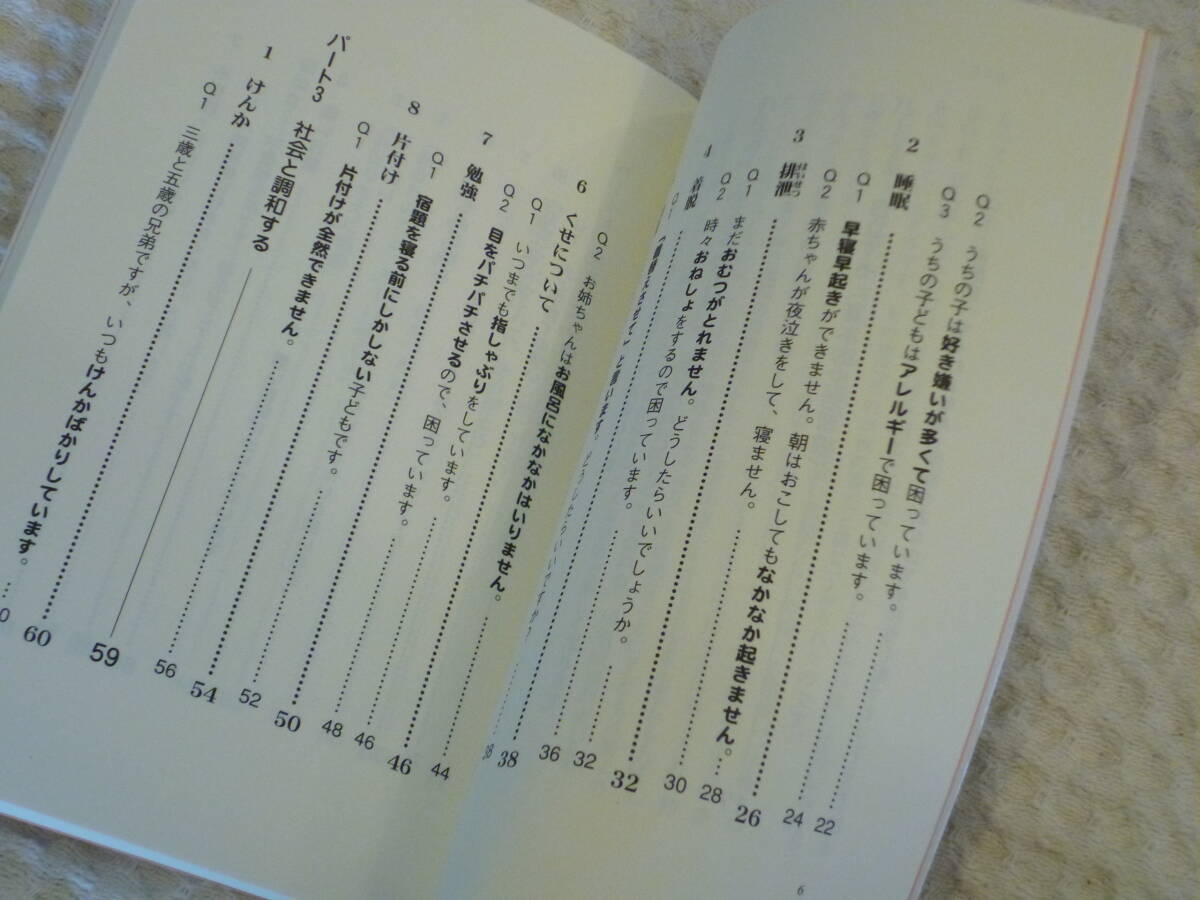 Q2 うちの子は好き嫌いが多くて困っています。 22
Q3 うちの子どもはアレルギーで困っています。 24
2 睡眠 26
Q1 早寝早起きができません。朝はおこしてもなかなか起きません。 28
Q2 赤ちゃんが夜泣きをして、寝ません。 30
3 排泄 はいせつ 32
Q1 まだおむつがとれません。どうしたらいいでしょうか。 32
Q2 時々おねしょをするので困っています。 36
4 着脱 38
Q1 と言います。 38
6
Q2 お姉ちゃんはお風呂になかなかはいりません。 44
6 くせについて 46
Q1 いつまでも指しゃぶりをしています。 46
Q2 目をパチパチさせるので、困っています。 48
7 勉強 50
Q1 宿題を寝る前にしかしない子どもです。 52
8 片付け 54
Q1 片付けが全然できません。 56
パート3 社会と調和する 59
1 けんか 60
Q1 三歳と五歳の兄弟ですが、いつもけんかばかりしています。 0